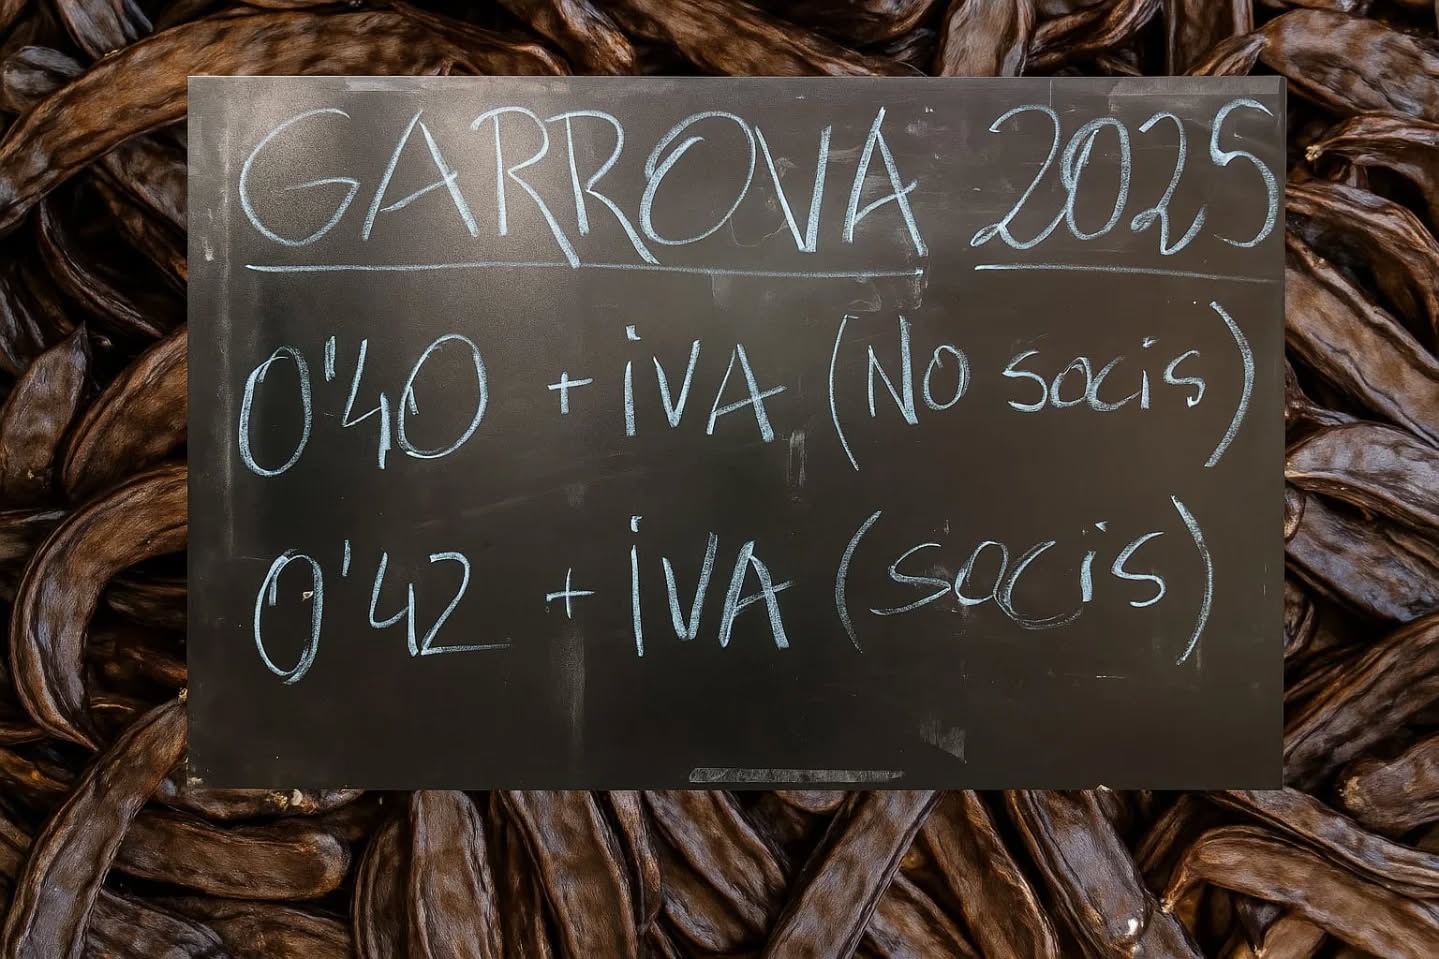 GARROVA 2025
0'40 + iVA (No socis)
0'42 + iVA (socis)